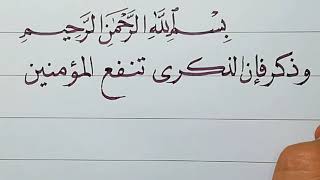 بِسْمِ ٱللَّهِ الرَّحْمَٰنِ الرَّحِيمِ
وذكر فإن الذكرى تنفع المؤمنين